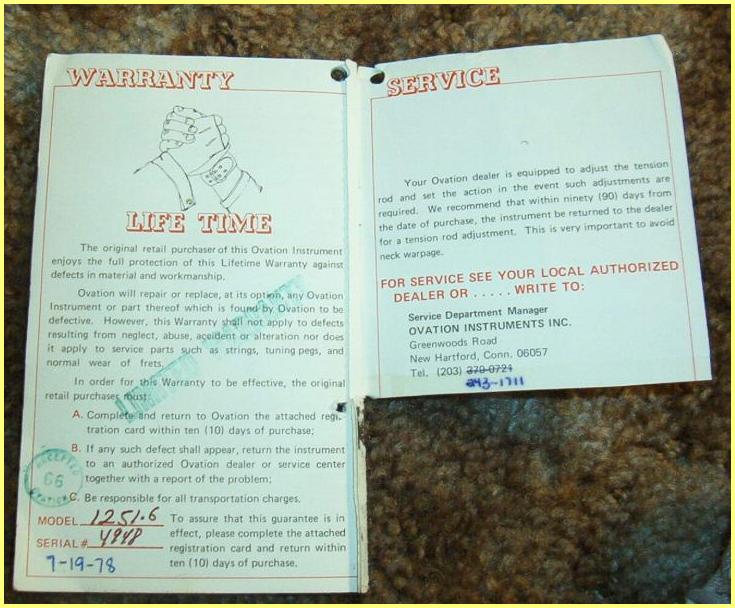 WARRANTY
LIFE TIME
The original retail purchaser of this Ovation Instrument
enjoys the full protection of this Lifetime Warranty against
defects in material and workmanship.
Ovation will repair or replace, at its option, any Ovation
Instrument or part thereof which is found by Ovation to be
defective. However, this Warranty shall not apply to defects
resulting from neglect, abuse, accident or alteration nor does
it apply to service parts such as strings, tuning pegs, and
normal wear of frets.
In order for this Warranty to be effective, the original
retail purchaser must:
A. Complete and return to Ovation the attached regis-
tration card within ten (10) days of purchase;
B. If any such defect shall appear, return the instrument
to an authorized Ovation dealer or service center
together with a report of the problem;
C. Be responsible for all transportation charges.
ACCEPTED
66
OVATION
MODEL 1251.6
SERIAL# 4948
7-19-78
To assure that this guarantee is in
effect, please complete the attached
registration card and return within
ten (10) days of purchase.
LIMITED WARRANTY
SERVICE
Your Ovation dealer is equipped to adjust the tension
rod and set the action in the event such adjustments are
required. We recommend that within ninety (90) days from
the date of purchase, the instrument be returned to the dealer
for a tension rod adjustment. This is very important to avoid
neck warpage.
FOR SERVICE SEE YOUR LOCAL AUTHORIZED
DEALER OR . . . . . WRITE TO:
Service Department Manager
OVATION INSTRUMENTS INC.
Greenwoods Road
New Hartford, Conn. 06057
Tel. (203) 379-0721
243-1711